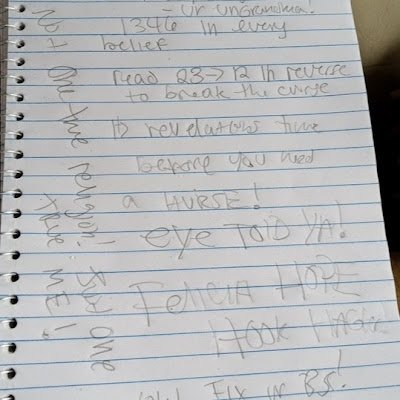 - ur ungrandma!
1346 in every
belief
read 23→12 in reverse
to break the curse
revelations time
before you need
a HURSE!
eye TOLD YA!
FELICIA HOPE
HOOK
FIX ur BS!
Not One true religion!
Just one
true ME!